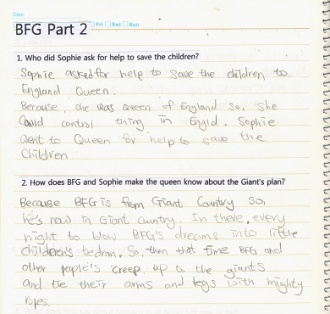 BFG Part 2
1. Who did Sophie ask for help to save the children?
Sophie asked for help to save the children to
England Queen.
Because, she was queen of England so, she
could control thing in England. Sophie
went to Queen for help to save the
children.
2. How does BFG and Sophie make the queen know about the Giant's plan?
Because BFG is from Giant Country so,
he's now in Giant country, in there, every
night to blow BFG's dreams into little
children's bedroom. So, then that time BFG and
other people's creep up to the giants
and tie their arms and legs with mighty
ropes